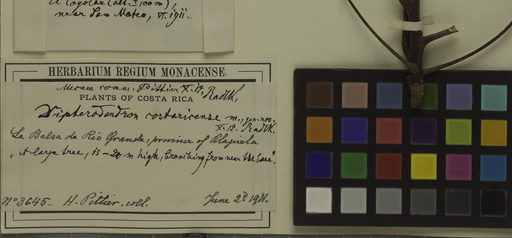 near San Mateo, VI. 1911.
HERBARIUM REGIUM MONACENSE.
Mecum comm. Pittier X. 12. Radlk.
PLANTS OF COSTA RICA
Dipterodendron costaricense m., gen. nov.
X. 12. Radlk.
La Balsa de Rio Grande, province of Alajuela
"A large tree, 15-20 m high, branching from near the base".
No 3645 - H. Pittier, coll. June 2d 1911.